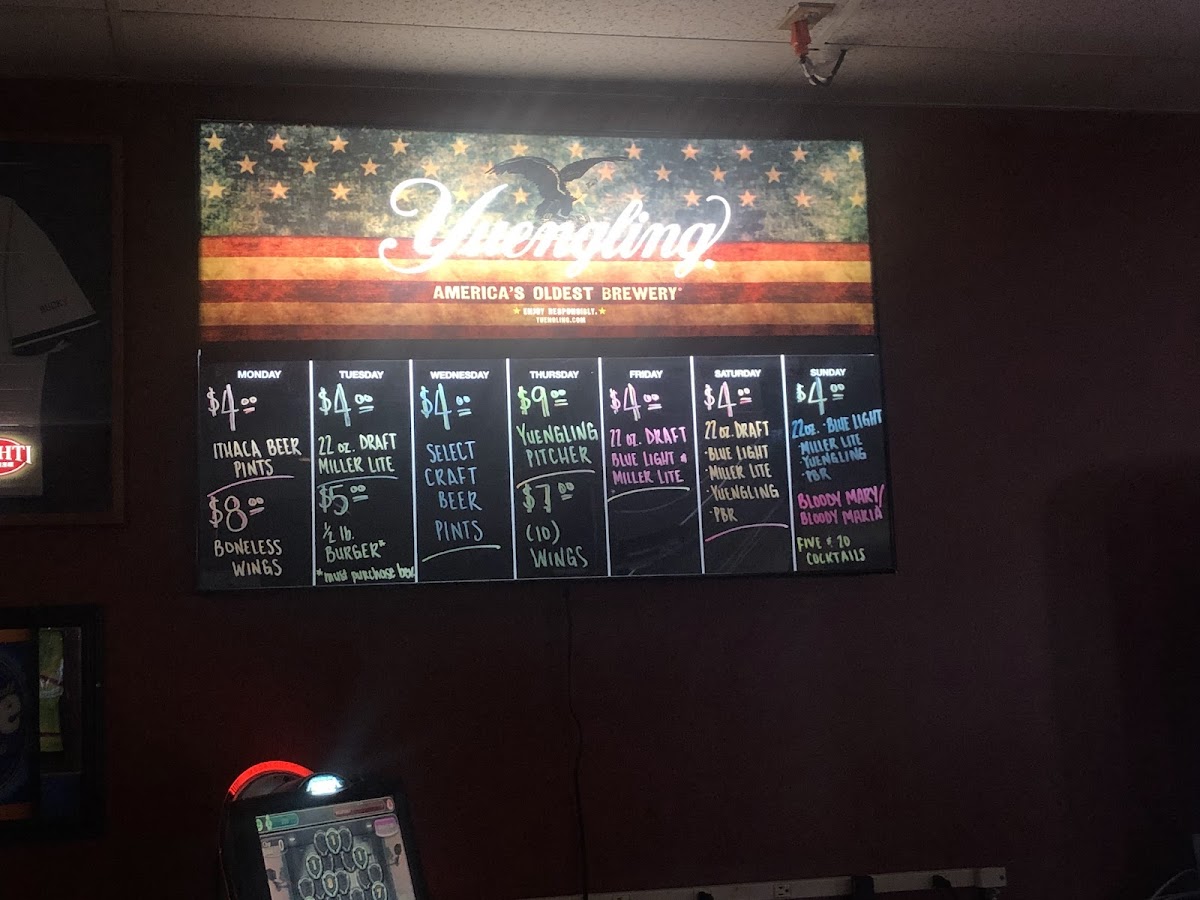 Yuengling
AMERICA'S OLDEST BREWERY
ENJOY RESPONSIBLY.
YUENGLING.COM
MONDAY
$4.00
ITHACA BEER
PINTS
$8.00
BONELESS
WINGS
TUESDAY
$4.00
22 oz. DRAFT
MILLER LITE
$5.00
1/2 lb.
BURGER*
*must purchase bev.
WEDNESDAY
$4.00
SELECT
CRAFT
BEER
PINTS
THURSDAY
$9.00
YUENGLING
PITCHER
$7.00
(10)
WINGS
FRIDAY
$4.00
22 oz. DRAFT
BLUE LIGHT &
MILLER LITE
SATURDAY
$4.00
22 oz. DRAFT
·BLUE LIGHT
·MILLER LITE
·YUENGLING
·PBR
SUNDAY
$4.00
22oz. ·BLUE LIGHT
·MILLER LITE
·YUENGLING
·PBR
BLOODY MARY/
BLOODY MARIA
FIVE & 20
COCKTAILS